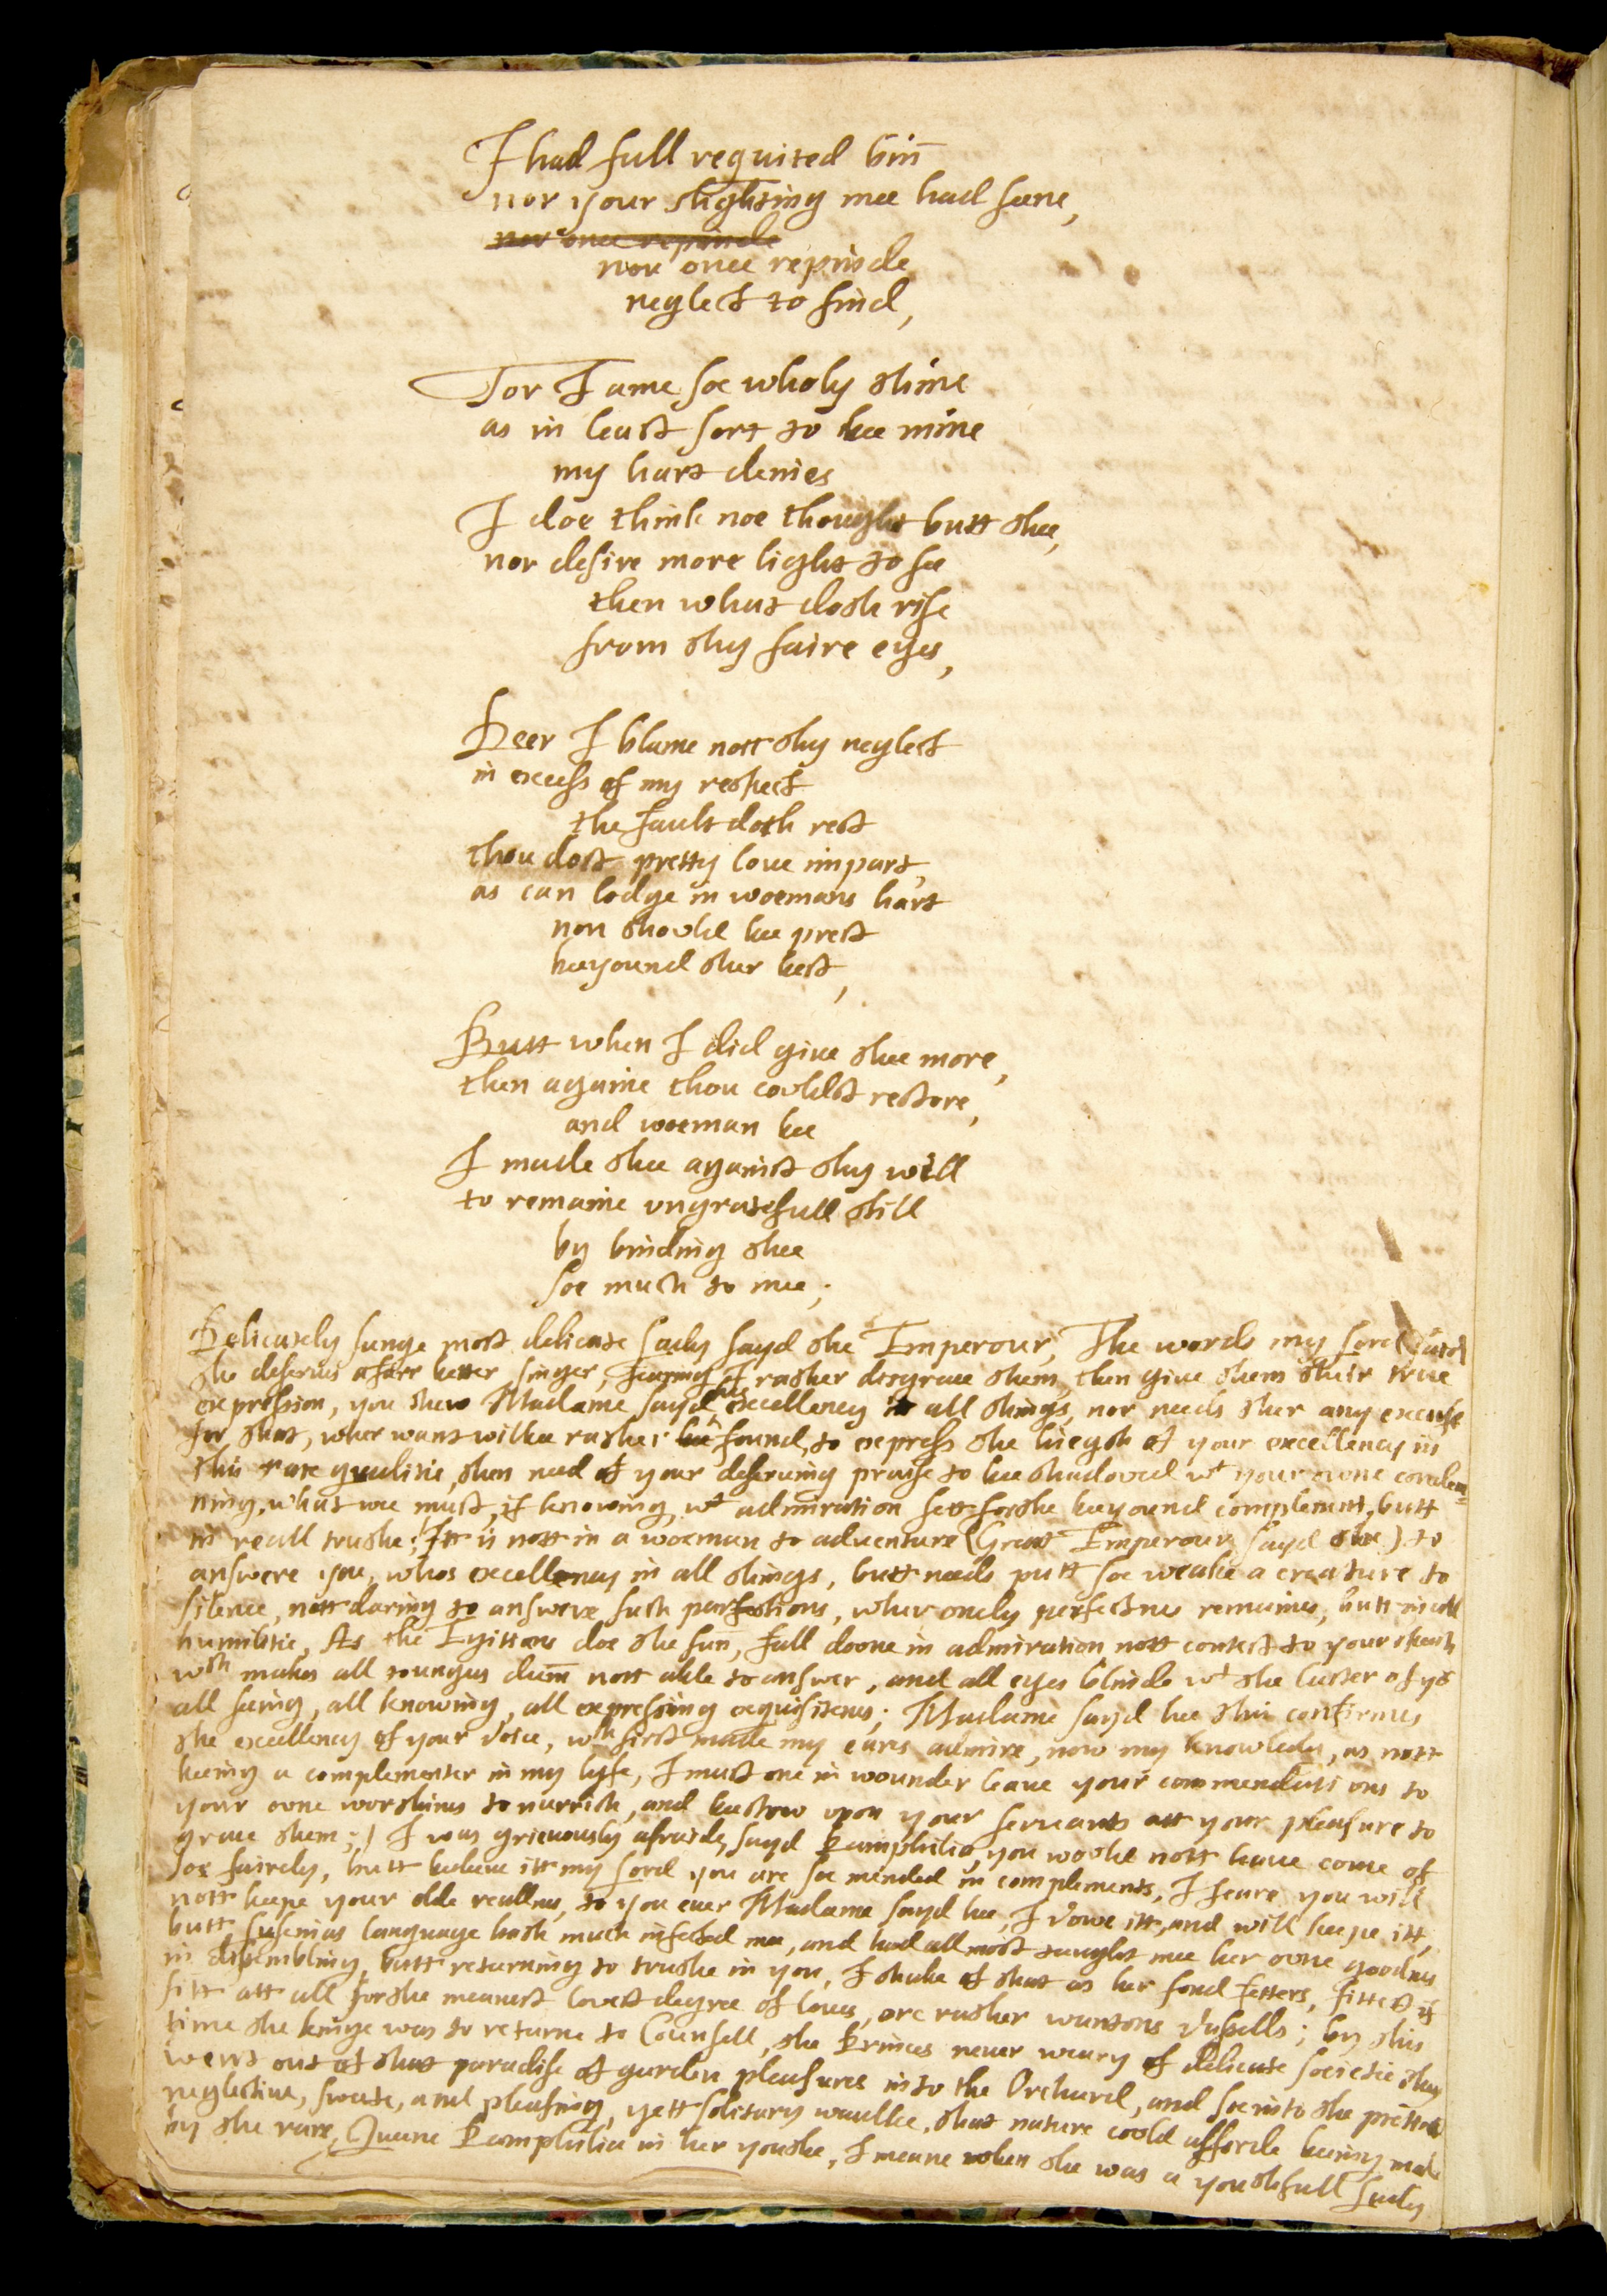 I had full requited binn
nor your slighting mee had seene,
nor once repinde
nor once repinde
neglect to find,
For I ame soe wholy thine
as in least sort to bee mine
my hart denies
I doe think noe thought butt thee,
nor desire more light to see
then what doth rise
from thy faire eyes,
Deer I blame nott thy neglect
in excess of my respect
the fault doth rest
thou dost pretty love impart,
as can lodge in woemans hart
non showld bee prest
beeyound ther best,
Butt when I did give thee more,
then againe thou cowldst restore,
and woeman bee
I made thee against thy will
to remaine ungratefull still
by binding thee
soe much to mee;
Delicately sunge most delicate Lady sayd the Emperour, The words my Lord
she deserves a farr better singer, fearing I rather disgrace them, then give them their true
expression, you shew Madame sayd his excellency in all things, nor needs ther any excuse
for that, wher want wilbee rather found, to express the hiegth of your excellency in
this rare qualitie, then need of your deserving praise to bee shadowed wt your owne condem=
ning, what wee must, if knowing, wt admiration sett forthe beeyound complement, butt
in reall truthe; Itt is nott in a woeman to adventure (Great Emperour sayd she) to
answere you, whos excellency in all things, butt needs putt soe weake a creature to
silence, nott daring to answere such parfections, wher onely perfectnes remaines, butt in all
humilitie, As the Egittians doe the sunn, fall downe in admiration nott contest to your speach
wch makes all toungues dumm nott able to answer, and all eyes blinde wt the luster of yor
all seeing, all knowing, all expressing exquisitenes; Madame sayd hee this confirmes
the excellency of your voice, wch first made my eares admire, now my knowledg, as nott
beeing a complementer in my lyfe, I must one in wounder leave your commendations to
your owne worthines to nurrish, and bestow upon your servants att your pleasure to
grace them;) I was grievously afraide, sayd Pamphilia, you wowld nott have come of
soe fairely, butt beleeve itt my Lord you are soe mended in complements, I feare you will
nott keepe your olde reallnes, to you ever Madame sayd hee, I vowe itt, and will keepe itt,
butt Lusenias language hath much infected mee, and had allmost taught mee her owne goodnes
in dissembling, butt returning to truthe in you, I shake of that as her fond fetters, fittest if
fitt att all for the meanest lowest degree of loves, or rather wantons vassells; by this
time the kinge was to returne to Counsell, the Princes never weary of delicate societie they
went out of that paradise of garden pleasures into the Orchard, and soe into the prettiest
neglective, sweete, and pleasing, yett solitary waulke, that nature cowld afforde beeing made
by the rare, Queene Pamphilia in her youthe, I meane when she was a youthfull Lady